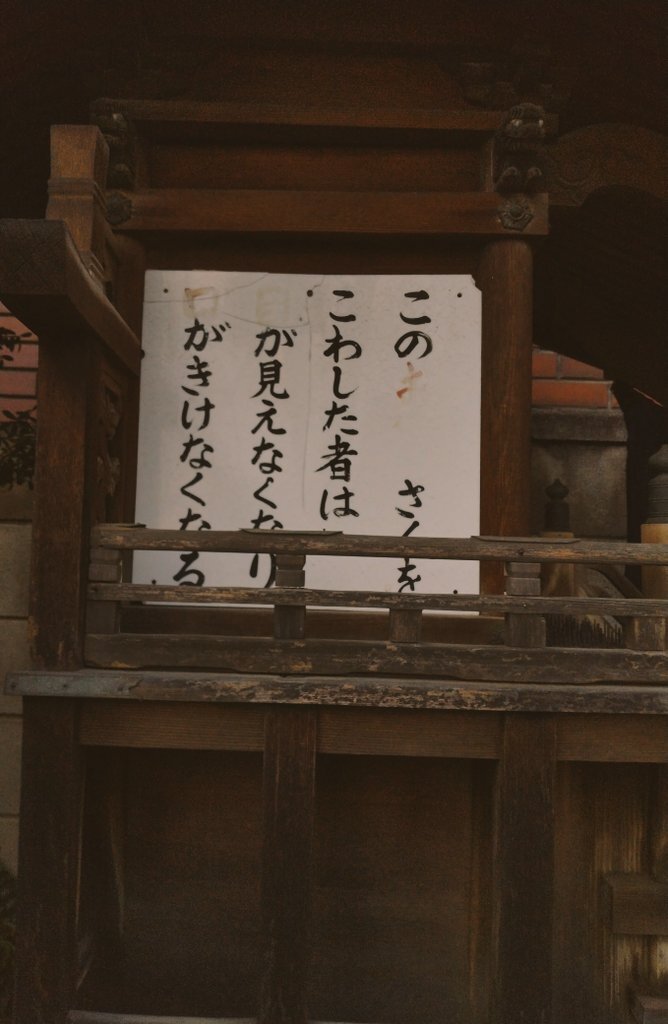 この さくを
こわした者は
が見えなくなり
がきけなくなる